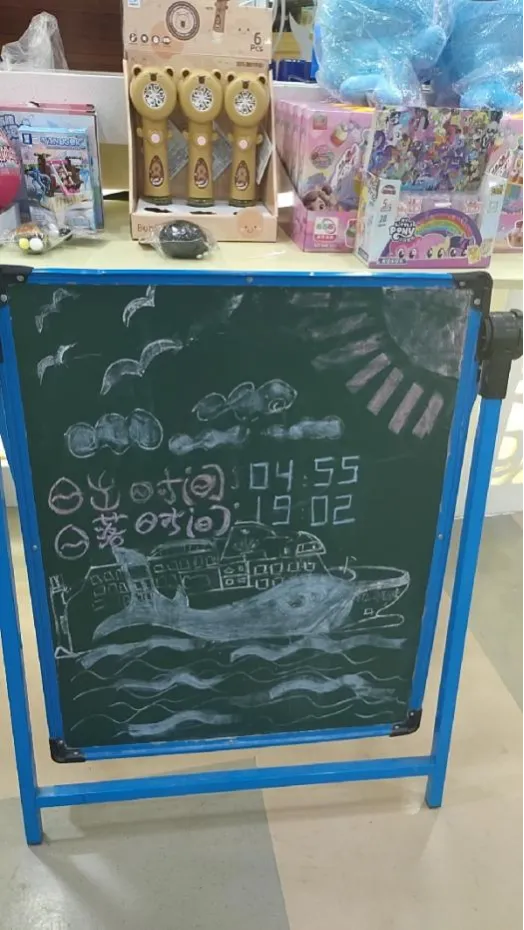 6
PCS
日出时间:04:55
日落时间:19:02
PONY